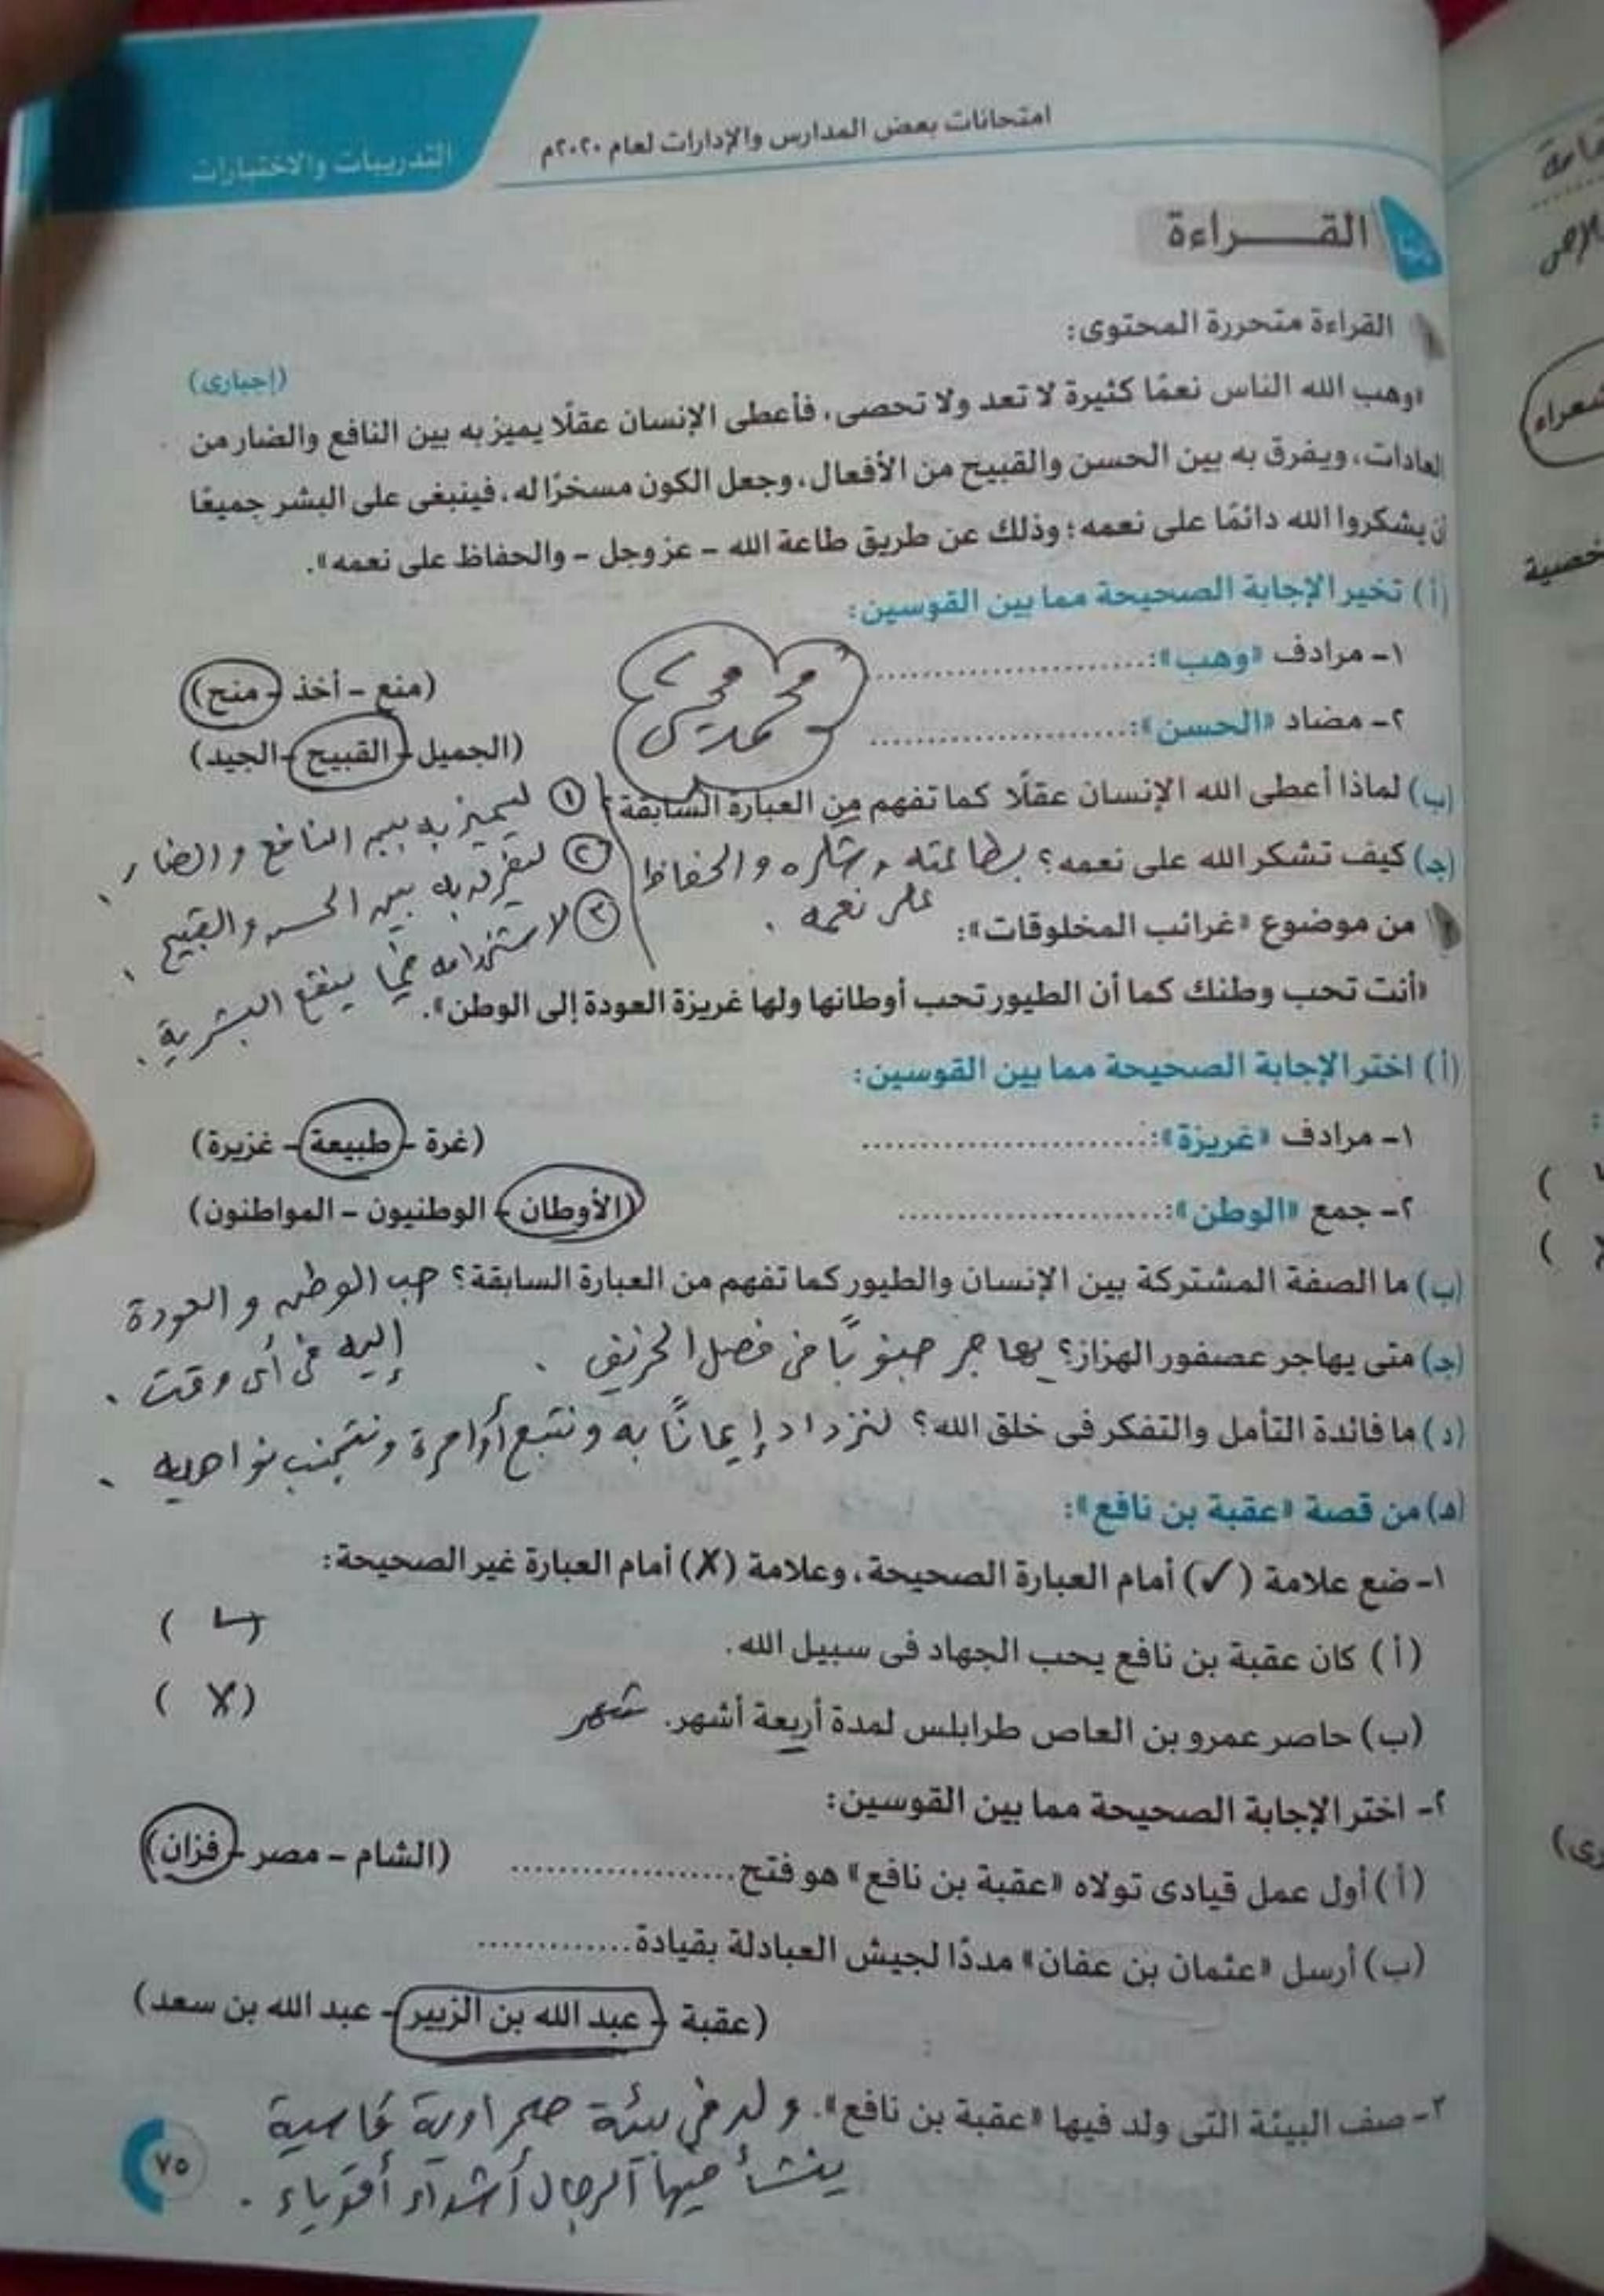 امتحانات بعض المدارس والإدارات لعام ٢٠٢٠م
التدريبات والاختبارات
القـــراءة
القراءة متحررة المحتوى:
(إجبارى)
«وهب الله الناس نعمًا كثيرة لا تعد ولا تحصى، فأعطى الإنسان عقلًا يميز به بين النافع والضار من
العادات، ويفرق به بين الحسن والقبيح من الأفعال، وجعل الكون مسخرًا له، فينبغى على البشر جميعًا
أن يشكروا الله دائمًا على نعمه؛ وذلك عن طريق طاعة الله - عز وجل - والحفاظ على نعمه».
(أ) تخير الإجابة الصحيحة مما بين القوسين:
١- مرادف «وهب»: ........................ (منع - أخذ - منح)
٢- مضاد «الحسن»: ........................ (الجميل - القبيح - الجيد)
محمد يحيى
(ب) لماذا أعطى الله الإنسان عقلًا كما تفهم من العبارة السابقة؟
١ ليميز به بين النافع والضار.
٢ ليفرق به بين الحسن والقبيح.
٣ لاستخدامه فيما ينفع البشرية.
(جـ) كيف تشكر الله على نعمه؟ بطاعته وشكره والحفاظ
على نعمه.
٢ من موضوع «غرائب المخلوقات»:
«أنت تحب وطنك كما أن الطيور تحب أوطانها ولها غريزة العودة إلى الوطن».
(أ) اختر الإجابة الصحيحة مما بين القوسين:
١- مرادف «غريزة»: ........................ (غرة - طبيعة - غزيرة)
٢- جمع «الوطن»: ........................ (الأوطان - الوطنيون - المواطنون)
(ب) ما الصفة المشتركة بين الإنسان والطيور كما تفهم من العبارة السابقة؟ حب الوطن والعودة
إليه فى أى وقت.
(جـ) متى يهاجر عصفور الهزاز؟ يهاجر جنوبًا فى فصل الخريف.
(د) ما فائدة التأمل والتفكر فى خلق الله؟ لنزداد إيمانًا به ونتبع أوامرة ونتجنب نواهيه.
(هـ) من قصة «عقبة بن نافع»:
١- ضع علامة (✓) أمام العبارة الصحيحة، وعلامة (✗) أمام العبارة غير الصحيحة:
(أ) كان عقبة بن نافع يحب الجهاد فى سبيل الله. ( ✓ )
(ب) حاصر عمرو بن العاص طرابلس لمدة أربعة أشهر. شهر ( ✗ )
٢- اختر الإجابة الصحيحة مما بين القوسين:
(أ) أول عمل قيادى تولاه «عقبة بن نافع» هو فتح .................... (الشام - مصر - فزان)
(ب) أرسل «عثمان بن عفان» مددًا لجيش العبادلة بقيادة .............
(عقبة - عبد الله بن الزبير - عبد الله بن سعد)
٣- صف البيئة التى ولد فيها «عقبة بن نافع». ولد فى بيئة صحراوية قاسية
ينشأ فيها الرجال أشداء أقوياء.
٧٥